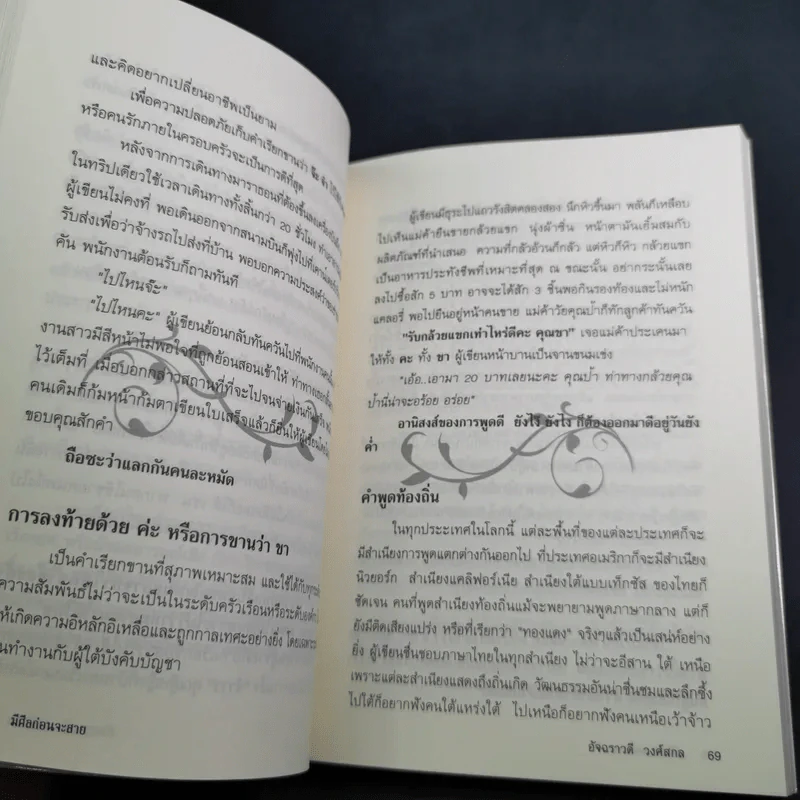 และคิดอยากเปลี่ยนอาชีพเป็นยาม
เพื่อความปลอดภัยเก็บคำเรียกขานว่า จ๊ะ จ้ะ
หรือคนรักภายในครอบครัวจะเป็นการดีที่สุด
หลังจากการเดินทางมาราธอนที่ต้องขึ้นลง
ในทริปเดียวใช้เวลาเดินทางทั้งสิ้นกว่า 20 ชั่วโมง
ผู้เขียนไม่คงที่ พอเดินออกจากสนามบินก็พุ่งไปที่
รับส่งเพื่อว่าจ้างรถไปส่งที่บ้าน พอบอกความประสงค์ว่า
คัน พนักงานต้อนรับก็ถามทันที
"ไปไหนจ๊ะ"
"ไปไหนคะ" ผู้เขียนย้อนกลับทันควันไปที่
งานสาวมีสีหน้าไม่พอใจที่ถูกย้อนสอนเข้าให้
ไว้เต็มที่ เมื่อบอกกล่าวสถานที่ที่จะไปจนจ่ายเงิน
คนเดิมก็ก้มหน้าก้มตาเขียนใบเสร็จแล้วก็ยื่นให้
ขอบคุณสักคำ
ถือซะว่าแลกกันคนละหมัด
การลงท้ายด้วย ค่ะ หรือการขานว่า ขา
เป็นคำเรียกขานที่สุภาพเหมาะสม และใช้ได้กับ
ความสัมพันธ์ไม่ว่าจะเป็นในระดับครัวเรือนหรือระดับ
ให้เกิดความอิหลักอิเหลื่อและถูกกาลเทศะอย่างยิ่ง
ทำงานกับผู้ใต้บังคับบัญชา
มีศีลก่อนจะสาย
ผู้เขียนมีธุระไปแถวรังสิตคลองสอง นึกหิวขึ้นมา พลันก็เหลือบ
ไปเห็นแม่ค้ายืนขายกล้วยแขก นุ่งผ้าซิ่น หน้าตามันเยิ้มสมกับ
ผลิตภัณฑ์ที่นำเสนอ ความที่กลัวอ้วนก็กลัว แต่หิวก็หิว กล้วยแขก
เป็นอาหารประทังชีพที่เหมาะที่สุด ณ ขณะนั้น อย่ากระนั้นเลย
ลงไปซื้อสัก 5 บาท อาจจะได้สัก 3 ชิ้นพอกินรองท้องและไม่หนัก
แคลอรี่ พอไปยืนอยู่หน้าคนขาย แม่ค้าวัยคุณป้าก็ทักลูกค้าทันควัน
"รับกล้วยแขกเท่าไหร่ดีคะ คุณขา" เจอแม่ค้าประเคนมา
ให้ทั้ง คะ ทั้ง ขา ผู้เขียนหน้าบานเป็นจานขนมเข่ง
"เอ้อ..เอามา 20 บาทเลยนะคะ คุณป้า ท่าทางกล้วยคุณ
ป้านี่น่าจะอร้อย อร่อย"
อานิสงส์ของการพูดดี ยังไร ยังไง ก็ต้องออกมาดีอยู่วันยัง
ค่ำ
คำพูดท้องถิ่น
ในทุกประะเทศในโลกนี้ แต่ละพื้นที่ของแต่ละประเทศก็จะ
มีสำเนียงการพูดแตกต่างกันออกไป ที่ประเทศอเมริกาก็จะมีสำเนียง
นิวยอร์ก สำเนียงแคลิฟอร์เนีย สำเนียงใต้แบบเท็กซัส ของไทยก็
ชัดเจน คนที่พูดสำเนียงท้องถิ่นแม้จะพยายามพูดภาษากลาง แต่ก็
ยังมีติดเสียงแปร่ง หรือที่เรียกว่า "ทองแดง" จริงๆแล้วเป็นเสน่ห์อย่าง
ยิ่ง ผู้เขียนชื่นชอบภาษาไทยในทุกสำเนียง ไม่ว่าจะอีสาน ใต้ เหนือ
เพราะแต่ละสำเนียงแสดงถึงถิ่นเกิด วัฒนธรรมอันน่าชื่นชมและลึกซึ้ง
ไปใต้ก็อยากฟังคนใต้แหร่งใต้ ไปเหนือก็อยากฟังคนเหนือเว้าจ้าว
อัจฉราวดี วงศ์สกล 69